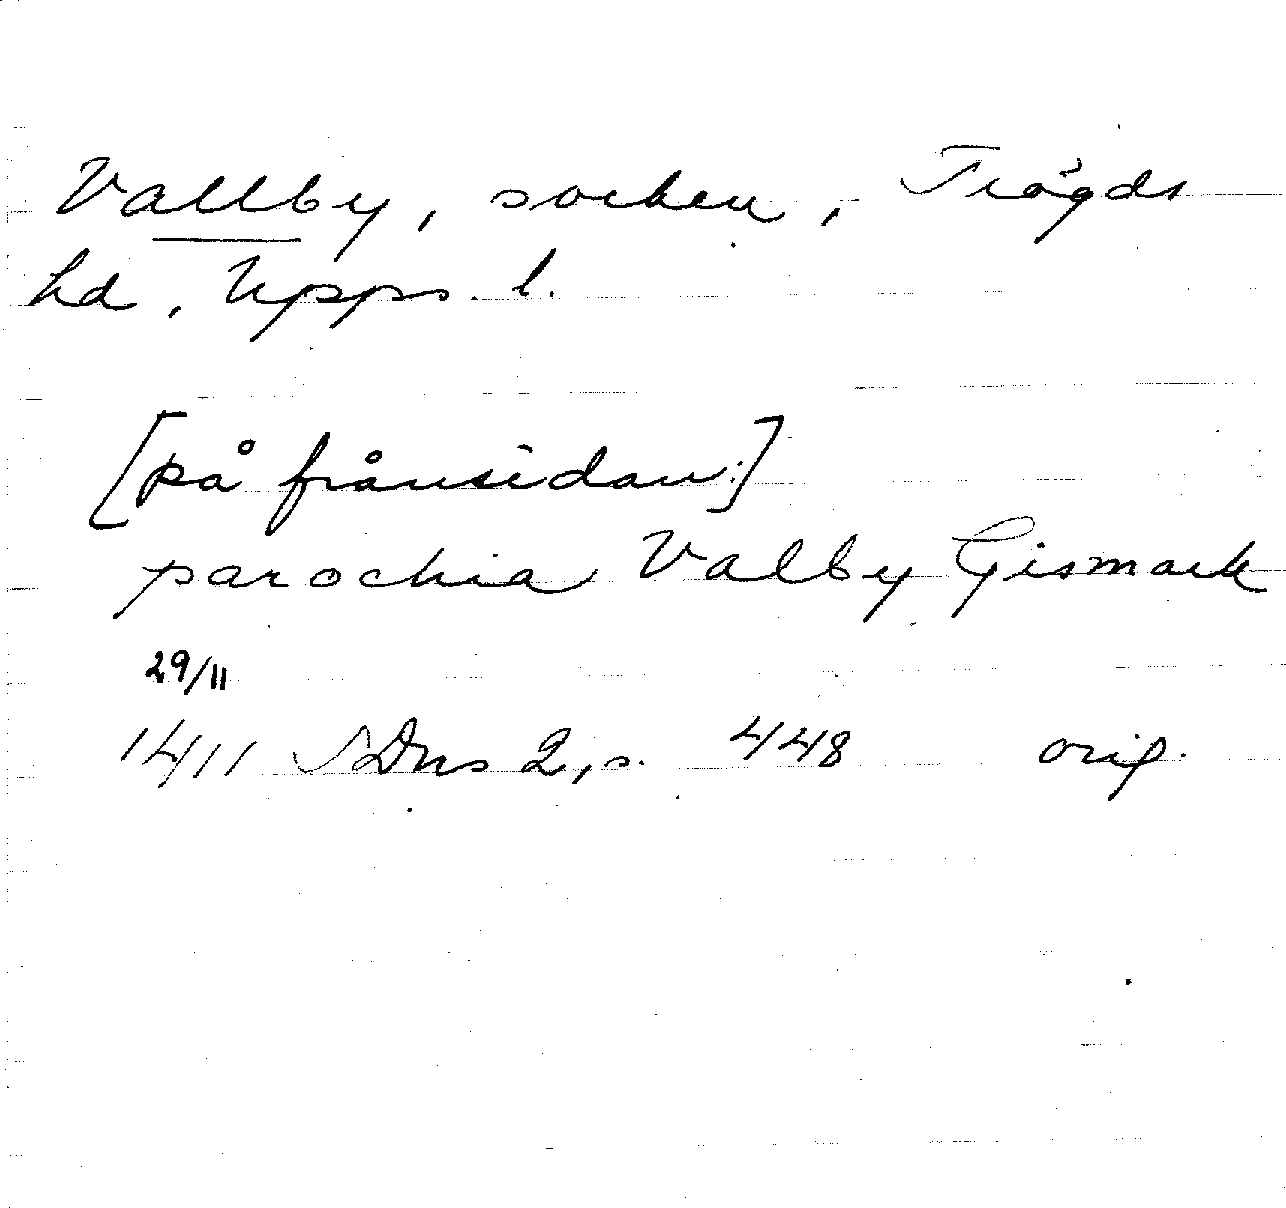 Vallby, socken, Trögds
hd, Upps. l.
[på frånsidan:]
parochia Valby Gismark
29/11
1411 SDns 2, s. 448 orig.